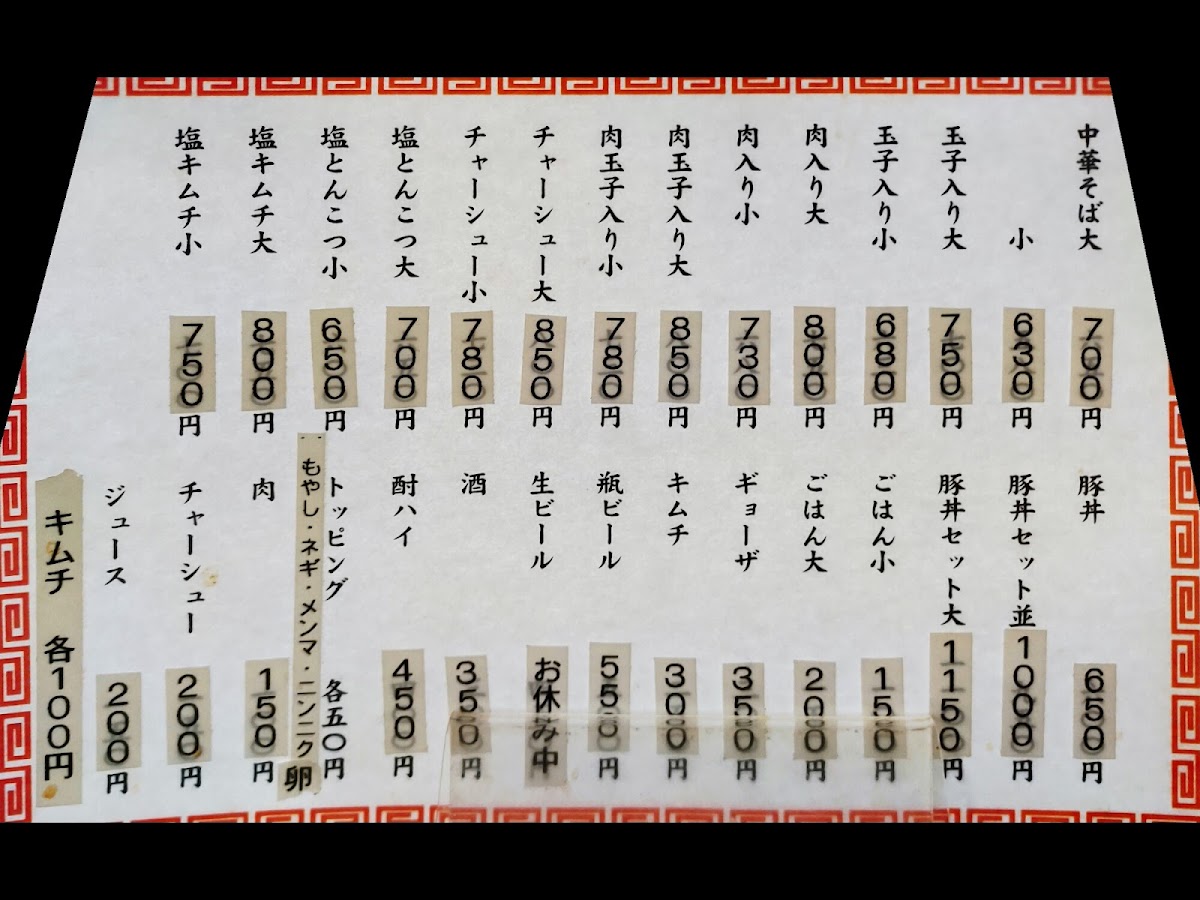 中華そば大 700円
小 630円
玉子入り大 750円
玉子入り小 680円
肉入り大 800円
肉入り小 730円
肉玉子入り大 850円
肉玉子入り小 780円
チャーシュー大 850円
チャーシュー小 780円
塩とんこつ大 700円
塩とんこつ小 650円
塩キムチ大 800円
塩キムチ小 750円
豚丼 650円
豚丼セット並 1000円
豚丼セット大 1150円
ごはん小 150円
ごはん大 200円
ギョーザ 350円
キムチ 300円
瓶ビール 550円
生ビール お休み中
酒 350円
酎ハイ 450円
トッピング 各五〇円
もやし・ネギ・メンマ・ニンニク 卵
肉 150円
チャーシュー 200円
ジュース 200円
キムチ 各100円